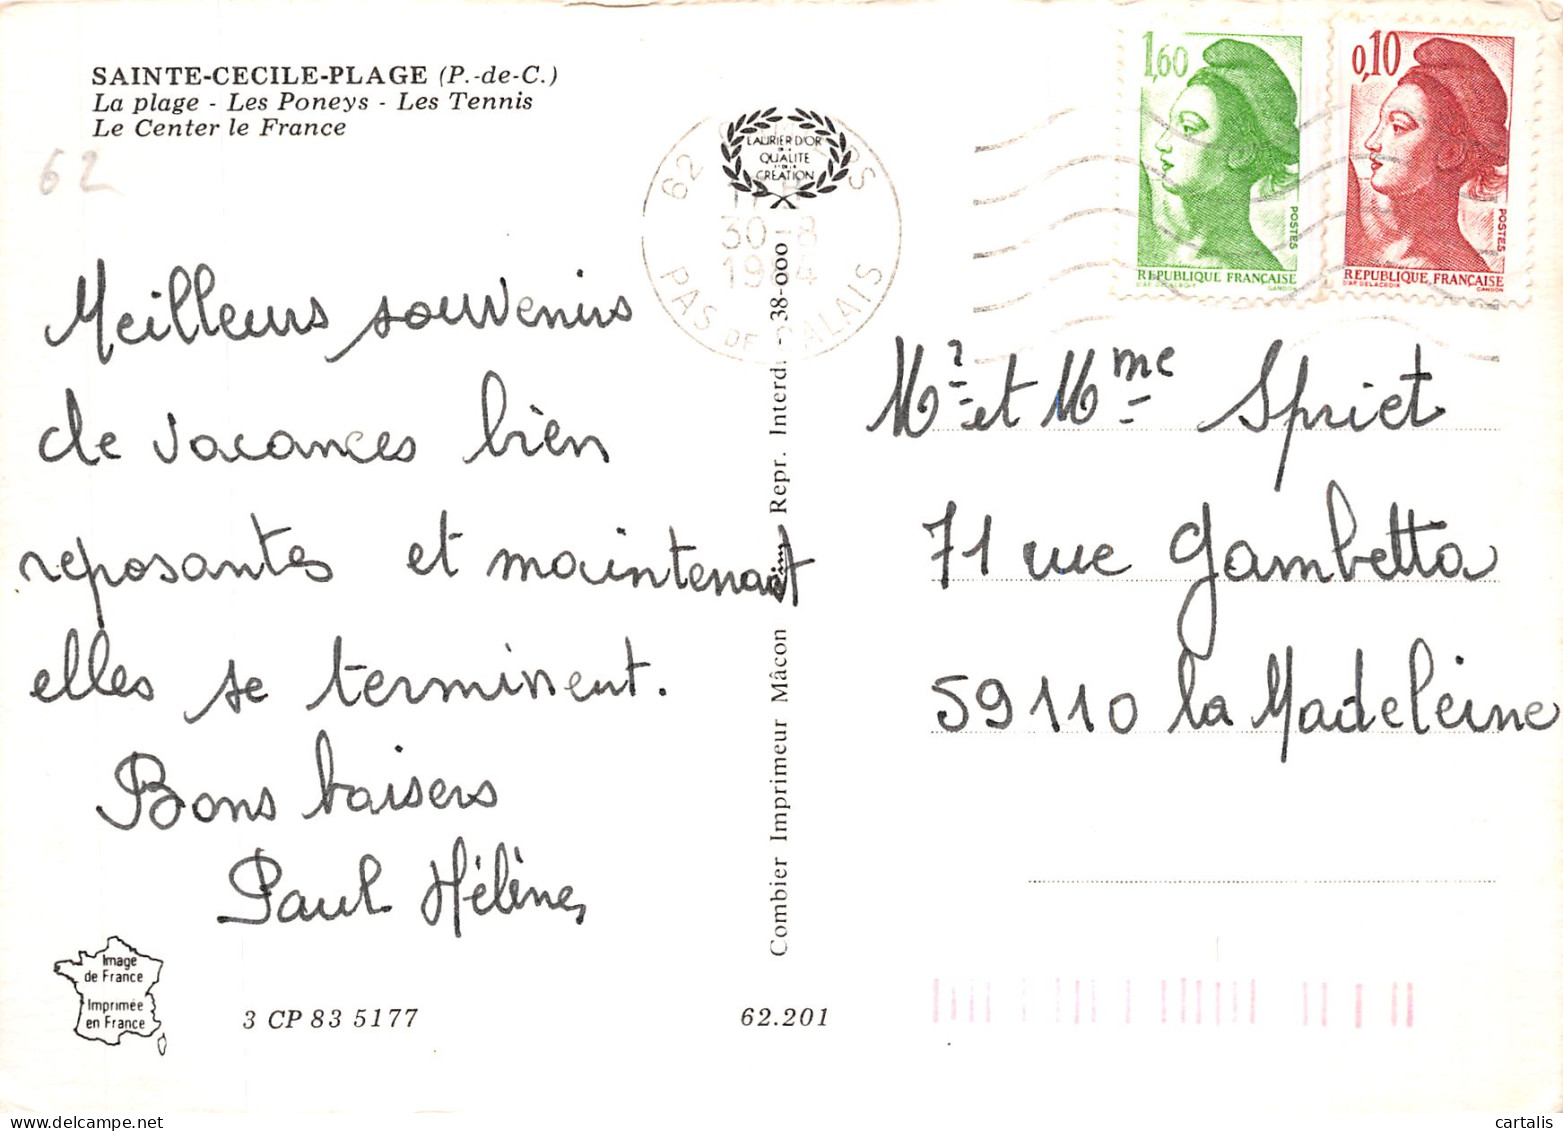 SAINTE-CECILE-PLAGE (P.-de-C.)
La plage - Les Poneys - Les Tennis
Le Center le France
62
Meilleurs souvenirs
de vacances bien
reposantes et maintenant
elles se terminent.
Bons baisers
Paul Hélène
Image
de France
Imprimée
en France
3 CP 83 5177
62.201
LAURIER D'OR
DE LA
QUALITE
ET DE LA
CREATION
62
30-8
PAS DE CALAIS
Combier Imprimeur Mâcon
Repr. Interd. - 38-000
1,60
POSTES
REPUBLIQUE FRANÇAISE
D'AP. DELACROIX GANDON
0,10
POSTES
REPUBLIQUE FRANÇAISE
D'AP. DELACROIX GANDON
Mr et Mme Spriet
71 rue Gambetta
59110 la Madeleine
cartalis